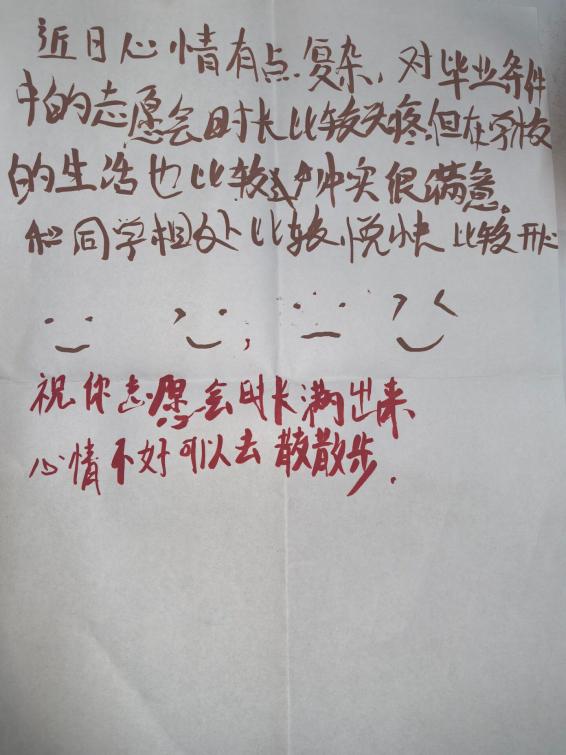 近日心情有点复杂，对毕业条件
中的志愿会时长比较头疼但在学校
的生活也比较充实很满意。
和同学相处比较悦快 比较开心
祝你志愿会时长满出来
心情不好可以去散散步.